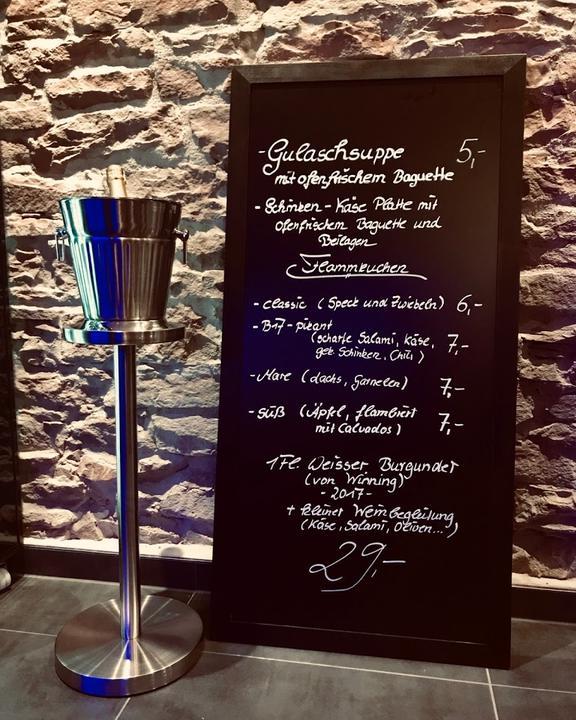 - Gulaschsuppe 5,-
mit ofenfrischem Baguette
- Schinken - Käse Platte mit
ofenfrischem Baguette und
Beilagen
Flammkuchen
- classic (Speck und Zwiebeln) 6,-
- B17 - pikant
(scharfe Salami, Käse, 7,-
gek. Schinken, Chili)
- Mare (Lachs, Garnelen) 7,-
- Süß (Äpfel, flambiert 7,-
mit Calvados)
1 Fl. Weisser Burgunder
(von Winning)
- 2017 -
+ kleiner Weinbegleitung
(Käse, Salami, Oliven...)
29,-